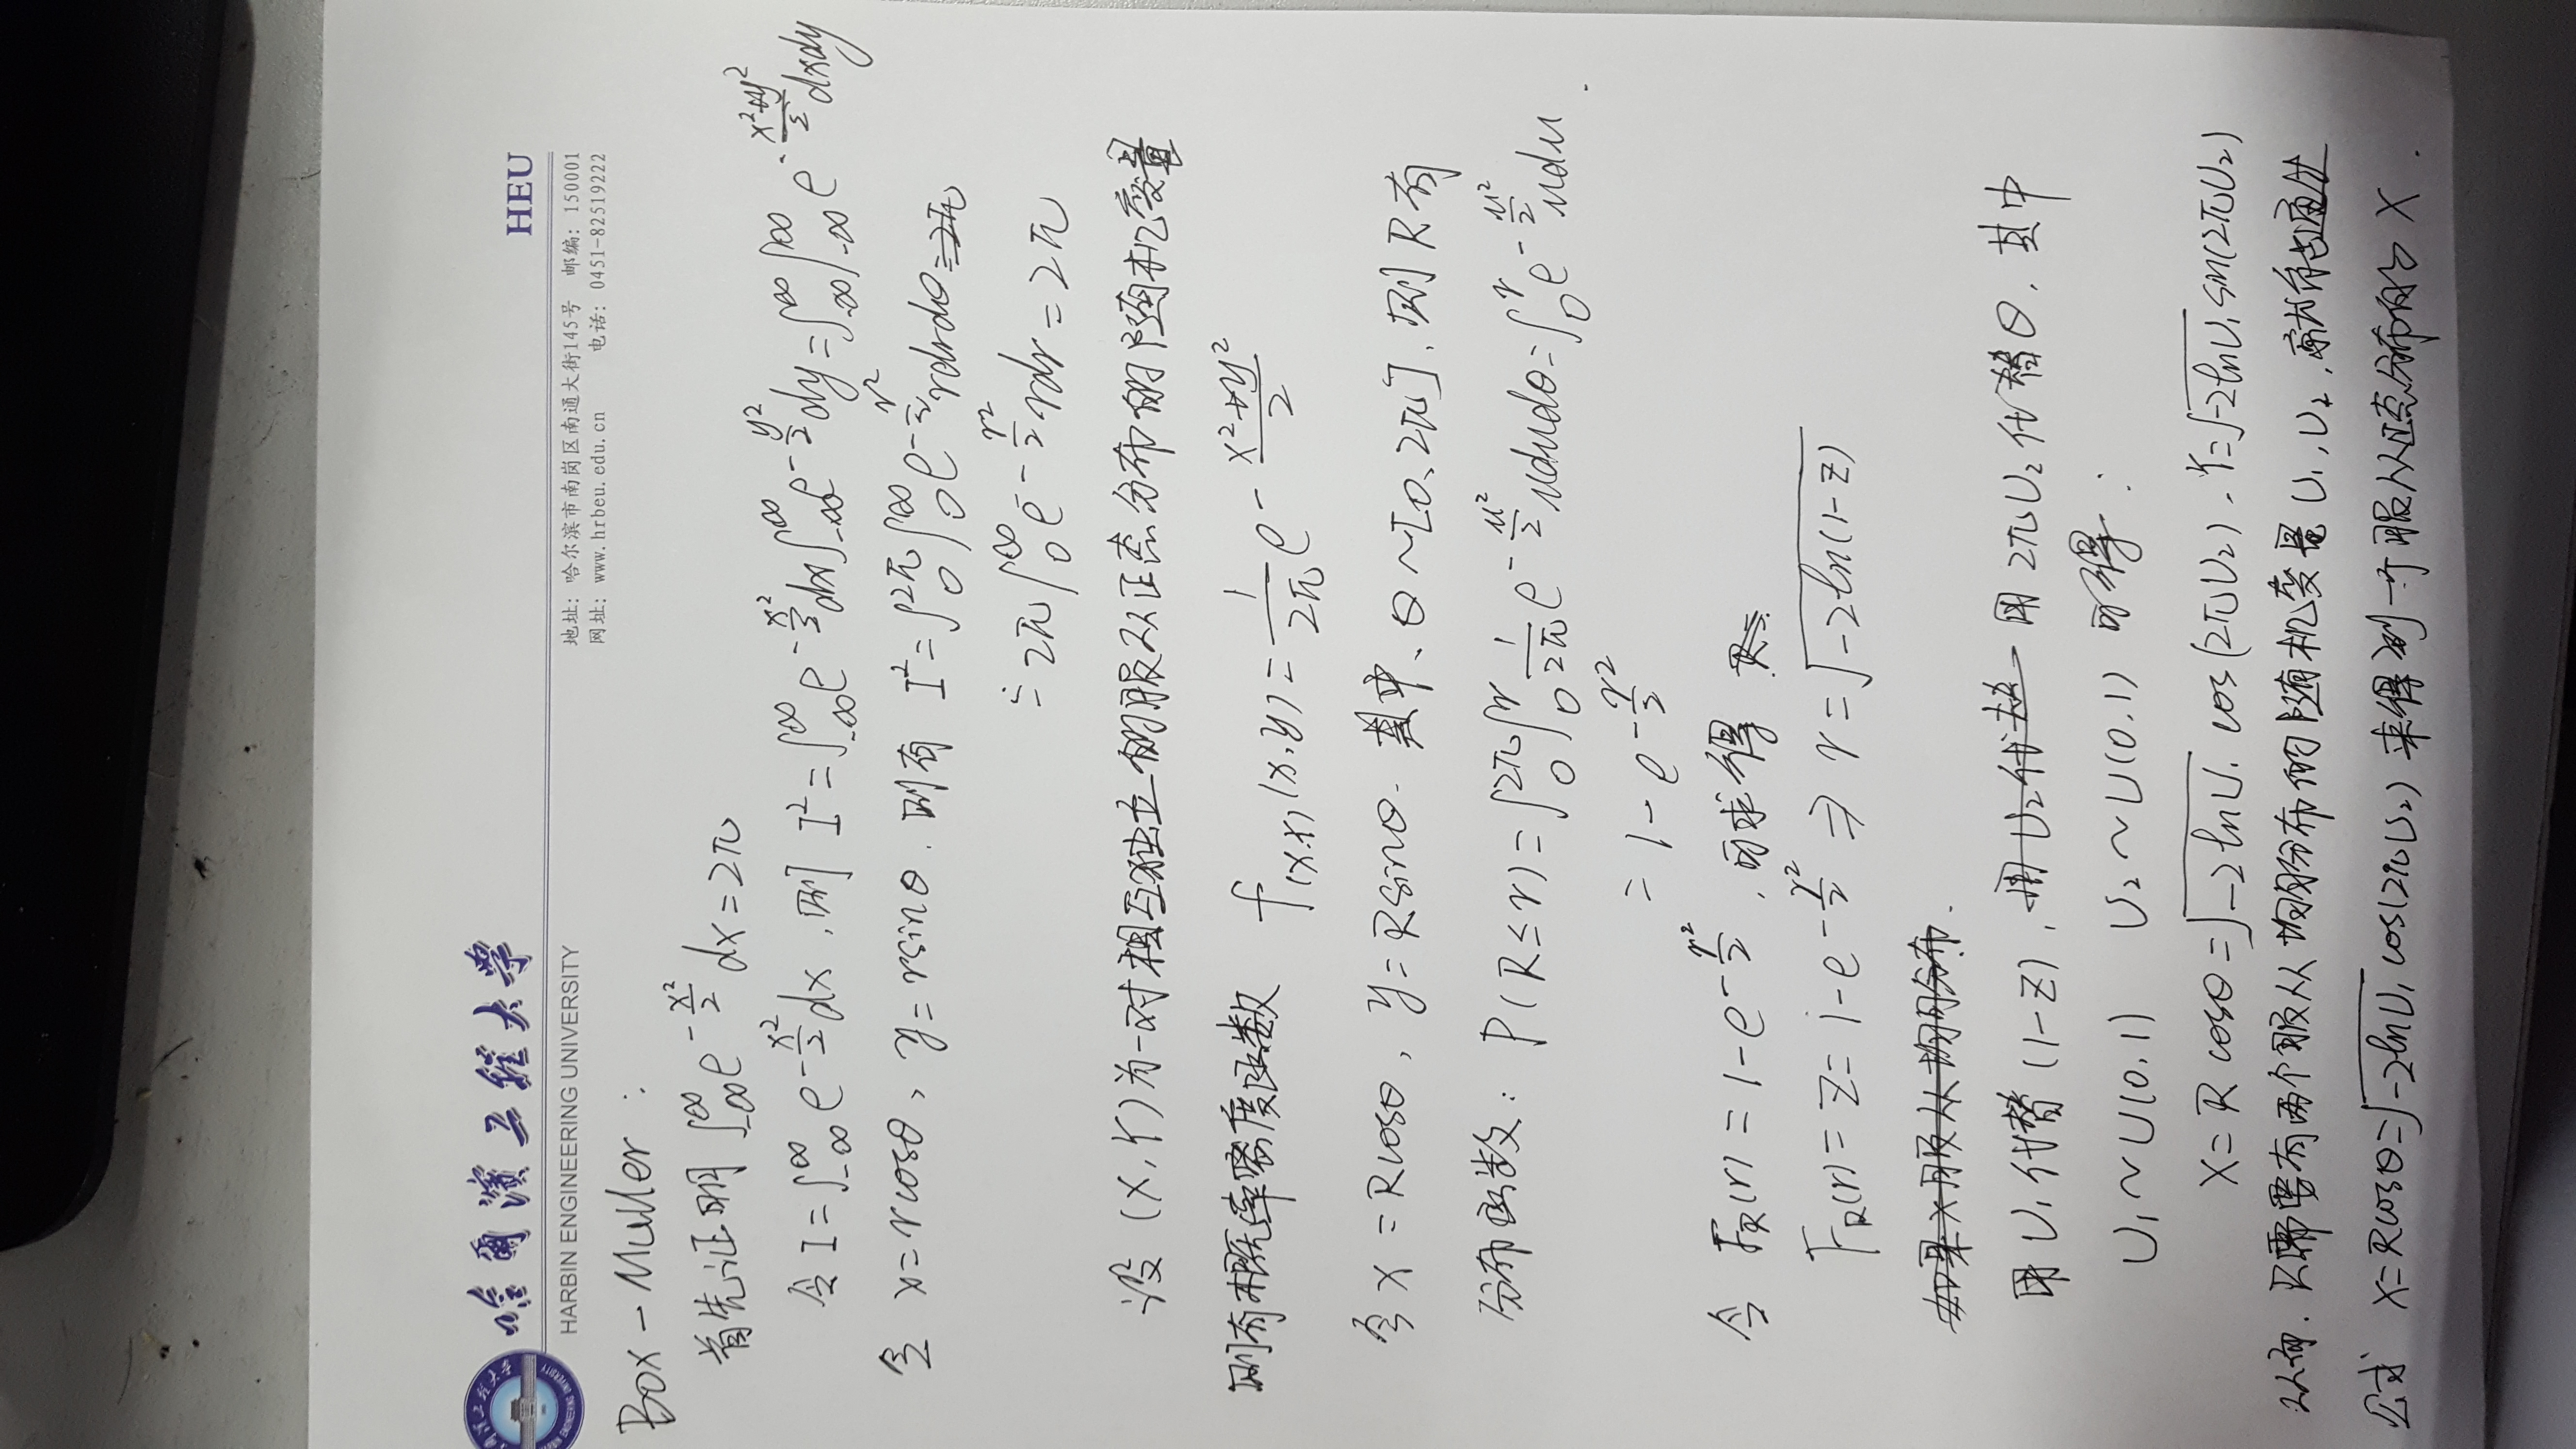 哈爾濱工程大學
HEU
HARBIN ENGINEERING UNIVERSITY
地址：哈尔滨市南岗区南通大街145号 邮编：150001
网址：www.hrbeu.edu.cn 电话：0451-82519222
Box-Muller：
首先证明 ∫_{-∞}^{∞} e^{-x²/2} dx = 2π
令 I = ∫_{-∞}^{∞} e^{-x²/2} dx，则 I² = ∫_{-∞}^{∞} e^{-x²/2} dx ∫_{-∞}^{∞} e^{-y²/2} dy = ∫_{-∞}^{∞} ∫_{-∞}^{∞} e^{-(x²+y²)/2} dxdy
令 x = rcosθ，y = rsinθ. 则有 I² = ∫_0^{2π} ∫_0^{∞} e^{-r²/2} rdrdθ
= 2π ∫_0^{∞} e^{-r²/2} rdr = 2π
设 (X, Y) 为一对相互独立的服从正态分布的随机变量
则有概率密度函数 f_{(X,Y)}(x, y) = 1/(2π) e^{-(x²+y²)/2}
令 x = Rcosθ，y = Rsinθ. 其中、θ~[0、2π]，则 R 有
分布函数：P(R≤r) = ∫_0^{2π} ∫_0^r 1/(2π) e^{-u²/2} ududθ = ∫_0^r e^{-u²/2} udu.
= 1 - e^{-r²/2}
令 F_R(r) = 1 - e^{-r²/2}，可求得
F_R(r) = Z = 1 - e^{-r²/2} ⇒ r = √(-2ln(1-Z))
如果x服从均匀分布.
用 U₁ 代替 (1-Z)，用 U₂ 代 用 2πU₂ 代替 θ，其中
U₁ ~ U(0,1) U₂ ~ U(0,1) 可得：
X = R cosθ = √(-2lnU₁) cos(2πU₂)，Y = √(-2lnU₁) sin(2πU₂)
从而，只需要有两个服从均匀分布的随机变量 U₁, U₂，就能通过
公式 X = Rcosθ = √(-2lnU₁) cos(2πU₂) 来得到一个服从正态分布的 X.